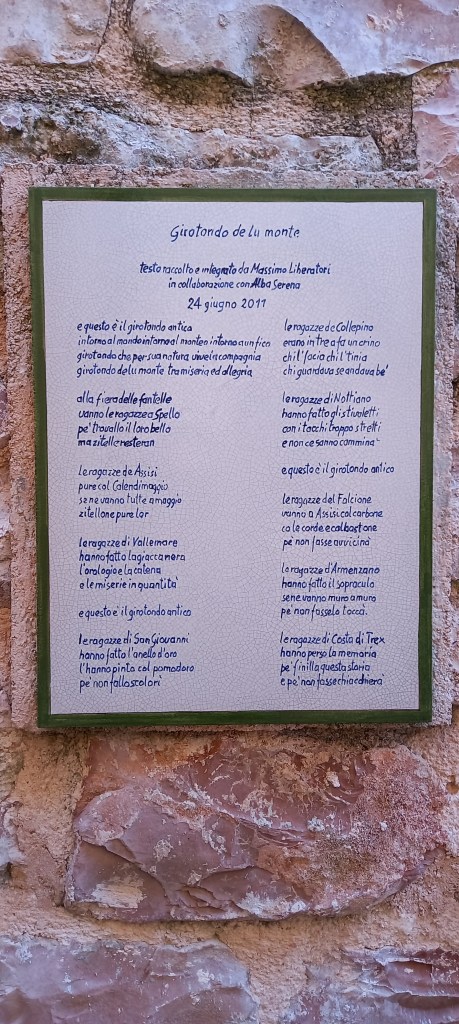 Girotondo de lu monte
testo raccolto e integrato da Massimo Liberatori
in collaborazione con Alba Serena
24 giugno 2011
e questo è il girotondo antico
intorno al mondo intorno al monte o intorno a un fico
girotondo che per sua natura vive in compagnia
girotondo de lu monte tra miseria ed allegria
alla fiera delle fantelle
vanno le ragazze a Spello
pe' trovallo il loro bello
ma zitelle resteran
le ragazze de Assisi
pure col Calendimaggio
se ne vanno tutte a maggio
zitellone pure lor
le ragazze di Vallemare
hanno fatto la giacca nera
l'orologio e la catena
e le miserie in quantità
e questo è il girotondo antico
le ragazze di San Giovanni
hanno fatto l'anello d'oro
l'hanno pinto col pomodoro
pe' non fallo scolorì
le ragazze de Collepino
erano in tre a fa un orino
chi l' facia chi l' tinia
chi guardava se andava be'
le ragazze di Nottiano
hanno fatto gli stivaletti
con i tacchi troppo stretti
e non ce sanno commina'
e questo è il girotondo antico
le ragazze del Falcione
vanno a Assisi col carbone
co le corde e col bastone
pe' non fasse avvicinà
le ragazze d'Armenzano
hanno fatto il sopraculo
se ne vanno muro a muro
pe' non fasselo toccà.
le ragazze di Costa di Trex
hanno perso la memoria
pe' finilla questa storia
e pe' non fasse chiacchierà